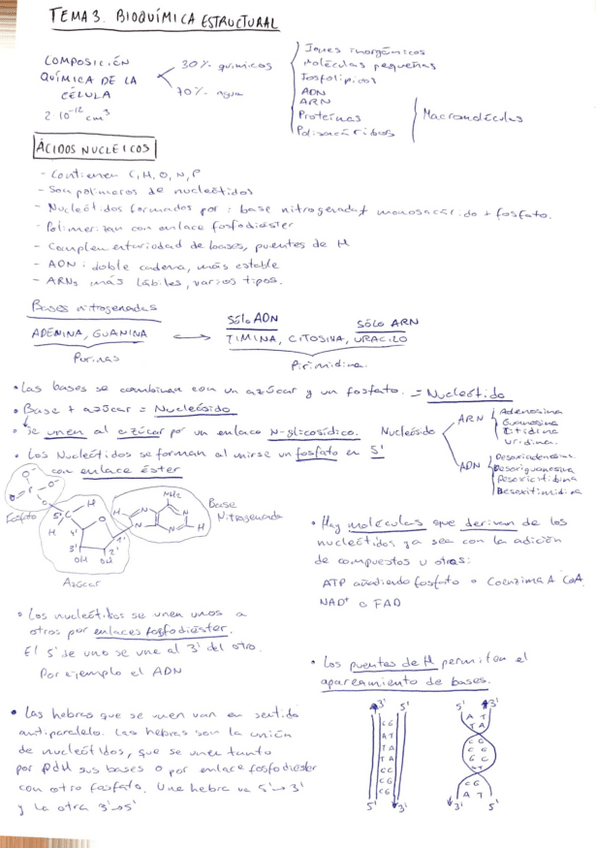 TEMA 3. BIOQUÍMICA ESTRUCTURAL
COMPOSICIÓN
QUÍMICA DE LA
CÉLULA
2·10⁻¹² cm³
30% químicos
70% agua
Iones inorgánicos
Moléculas pequeñas
Fosfolípidos
ADN
ARN
Proteínas
Polisacáridos
Macromoléculas
ÁCIDOS NUCLEICOS
- Contienen C, H, O, N, P
- Son polímeros de nucleótidos
- Nucleótidos formados por: base nitrogenada + monosacárido + fosfato.
- Polimerizan con enlace fosfodiéster
- Complementariedad de bases, puentes de H
- ADN: doble cadena, más estable
- ARNs más lábiles, varios tipos.
Bases nitrogenadas
SÓLO ADN
SÓLO ARN
ADENINA, GUANINA ⟷ TIMINA, CITOSINA, URACILO
Purinas
Pirimidina.
• Las bases se combinan con un azúcar y un fosfato. = Nucleótido
• Base + azúcar = Nucleósido
• Se unen al azúcar por un enlace N-glicosídico.
• Los Nucleótidos se forman al unirse un fosfato en 5'
con enlace éster
Nucleósido
ARN
Adenosina
Guanosina
Citidina
Uridina.
ADN
Desoxiadenosina.
Desoxiguanosina
Desoxicitidina
Desoxitimidina
Fosfato
Base
Nitrogenada
NH₂
5'
4'
3'
2'
1'
OH OH
Azúcar
• Hay moléculas que derivan de los
nucleótidos ya sea con la adición
de compuestos u otras:
ATP añadiendo fosfato o Coenzima A CoA.
NAD⁺ o FAD
• Los nucleótidos se unen unos a
otros por enlaces fosfodiéster.
El 5' de uno se une al 3' del otro.
Por ejemplo el ADN
• Los puentes de H permiten el
apareamiento de bases.
• Las hebras que se unen van en sentido
antiparalelo. Las hebras son la unión
de nucleótidos, que se unen tanto
por pdH sus bases o por enlace fosfodiester
con otro fosfato. Una hebra va 5'→3'
y la otra 3'→5'
3' 5'
CG
AT
TA
TA
CG
CG
CG
5' 3'
5' 3'
A T
T A
C G
C G
G C
C G
A T
3' 5'